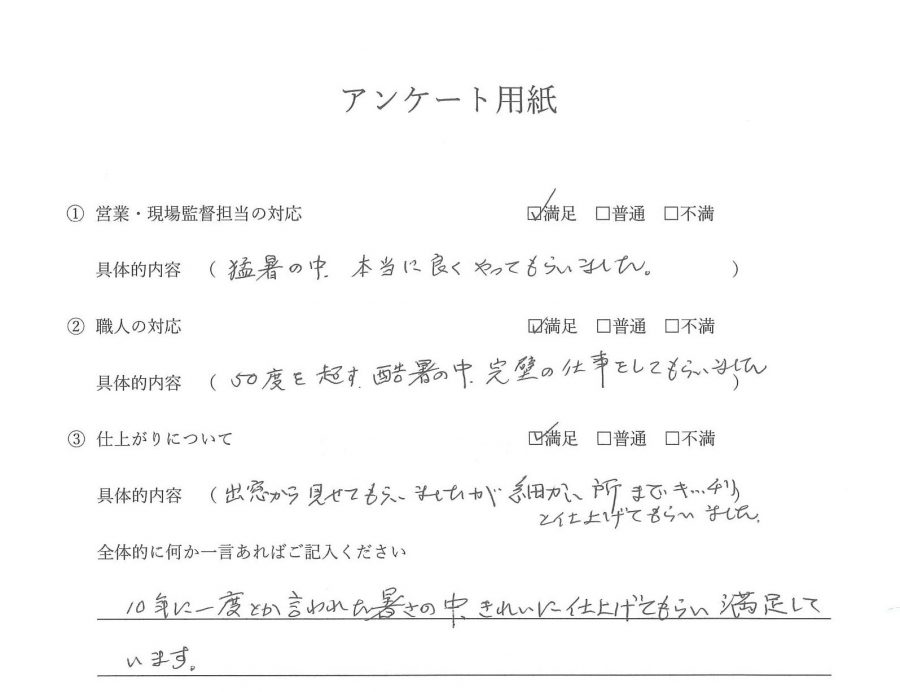 アンケート用紙
① 営業・現場監督担当の対応 ☑満足 □普通 □不満
具体的内容 （ 猛暑の中、本当に良くやってもらいました。 ）
② 職人の対応 ☑満足 □普通 □不満
具体的内容 （ 50度を超す、酷暑の中、完璧の仕事をしてもらいました ）
③ 仕上がりについて ☑満足 □普通 □不満
具体的内容 （ 出窓から見せてもらいましたが 細かい所までキッチリ
と仕上げてもらいました。
全体的に何か一言あればご記入ください
10年に一度とか言われた暑さの中、きれいに仕上げてもらい満足して
います。